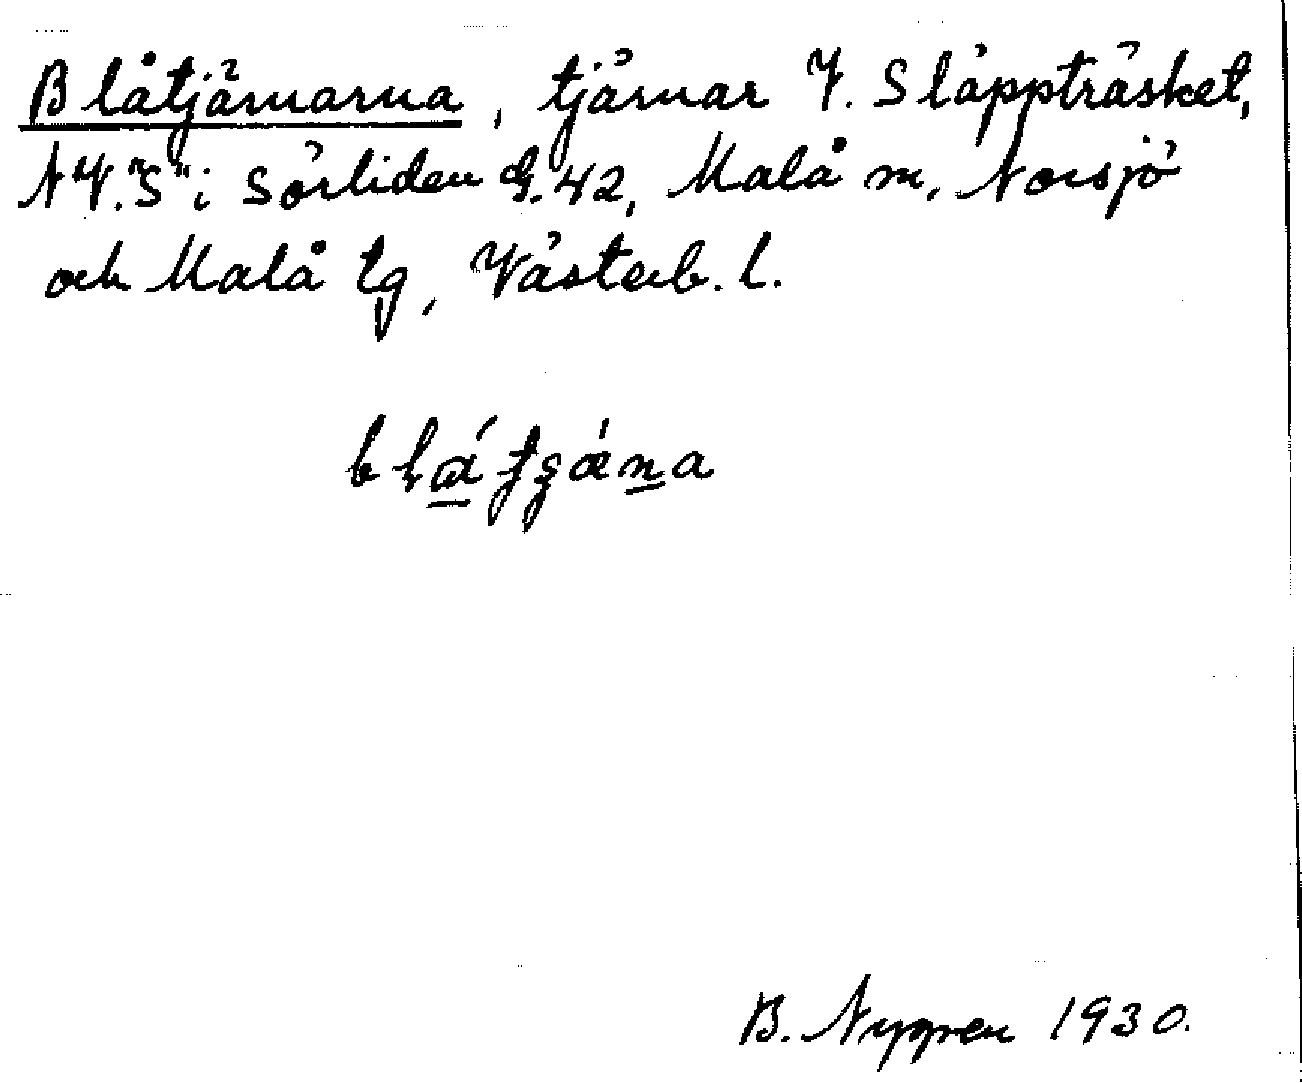 Blåtjärnarna, tjärnar V. Släppträsket,
NV. "S" i Sörliden G. 42, Malå sn, Norsjö
och Malå tg, Västerb. l.
B. Nygren 1930.